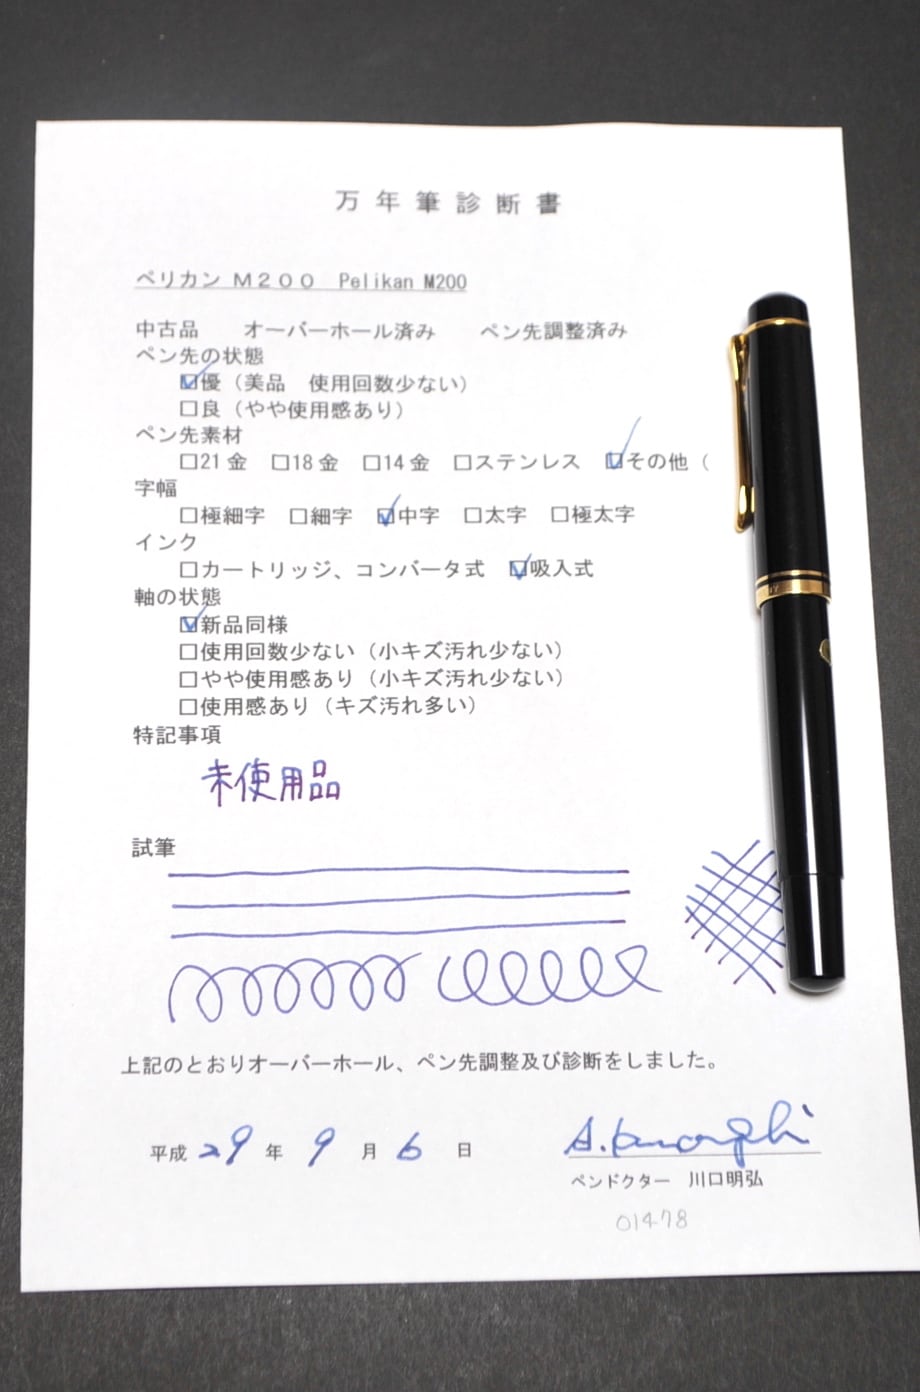 万年筆診断書
ペリカン M200 Pelikan M200
中古品 オーバーホール済み ペン先調整済み
ペン先の状態
☑優（美品 使用回数少ない）
□良（やや使用感あり）
ペン先素材
□21金 □18金 □14金 □ステンレス ☑その他（
字幅
□極細字 □細字 ☑中字 □太字 □極太字
インク
□カートリッジ、コンバータ式 ☑吸入式
軸の状態
☑新品同様
□使用回数少ない（小キズ汚れ少ない）
□やや使用感あり（小キズ汚れ少ない）
□使用感あり（キズ汚れ多い）
特記事項
未使用品
試筆
上記のとおりオーバーホール、ペン先調整及び診断をしました。
平成 29 年 9 月 6 日
ペンドクター 川口明弘
01478